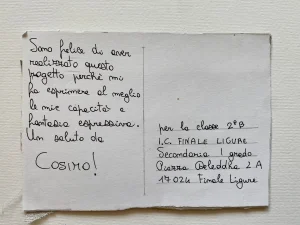 Sono felice di aver
realizzato questo
progetto perchè mi
fa esprimere al meglio
le mie capacità e
fantasia espressiva.
Un saluto da
COSIMO!
per la classe 2ªB
I.C. FINALE LIGURE
Secondaria I grado
Piazza Deledda 2A
17024 Finale Ligure